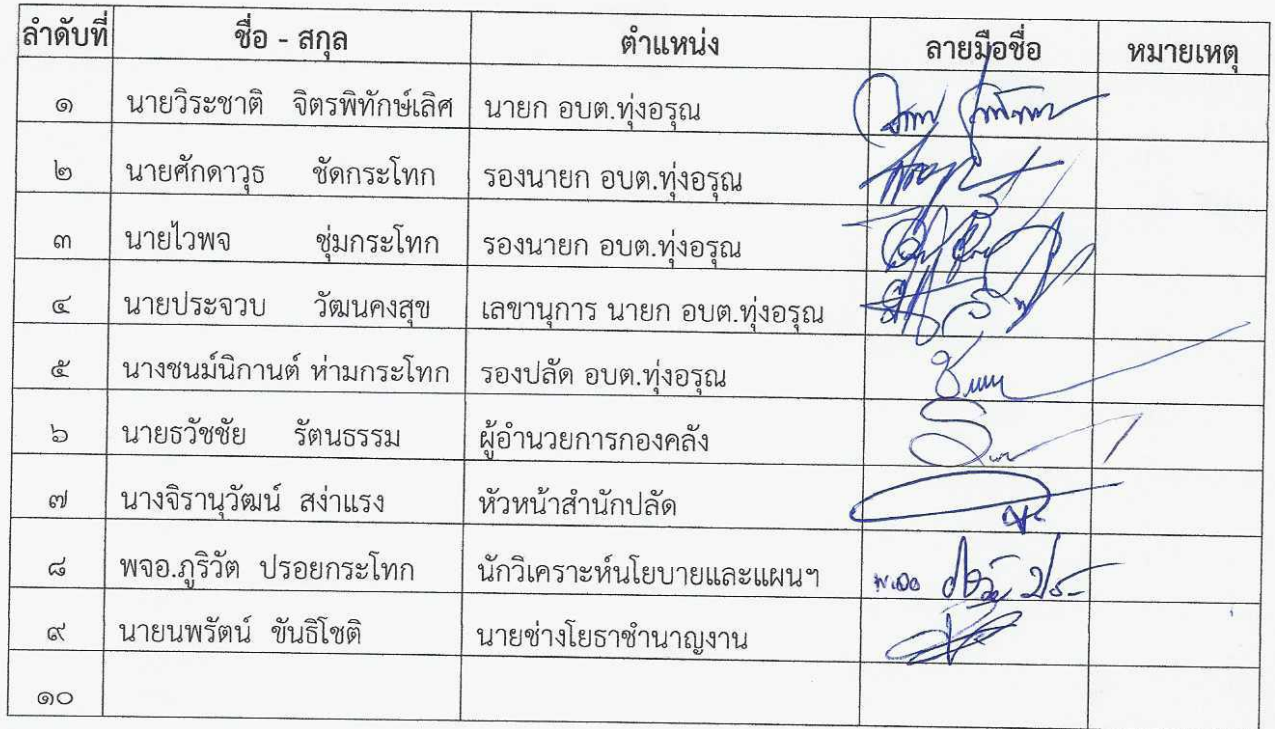 ลำดับที่ ชื่อ - สกุล ตำแหน่ง ลายมือชื่อ หมายเหตุ
๑ นายวิระชาติ จิตรพิทักษ์เลิศ นายก อบต.ทุ่งอรุณ
๒ นายศักดาวุธ ชัดกระโทก รองนายก อบต.ทุ่งอรุณ
๓ นายไวพจ ชุ่มกระโทก รองนายก อบต.ทุ่งอรุณ
๔ นายประจวบ วัฒนคงสุข เลขานุการ นายก อบต.ทุ่งอรุณ
๕ นางชนม์นิกานต์ ห่ามกระโทก รองปลัด อบต.ทุ่งอรุณ
๖ นายธวัชชัย รัตนธรรม ผู้อำนวยการกองคลัง
๗ นางจิรานุวัฒน์ สง่าแรง หัวหน้าสำนักปลัด
๘ พจอ.ภูริวัต ปรอยกระโทก นักวิเคราะห์นโยบายและแผนฯ
๙ นายนพรัตน์ ขันธิโชติ นายช่างโยธาชำนาญงาน
๑๐